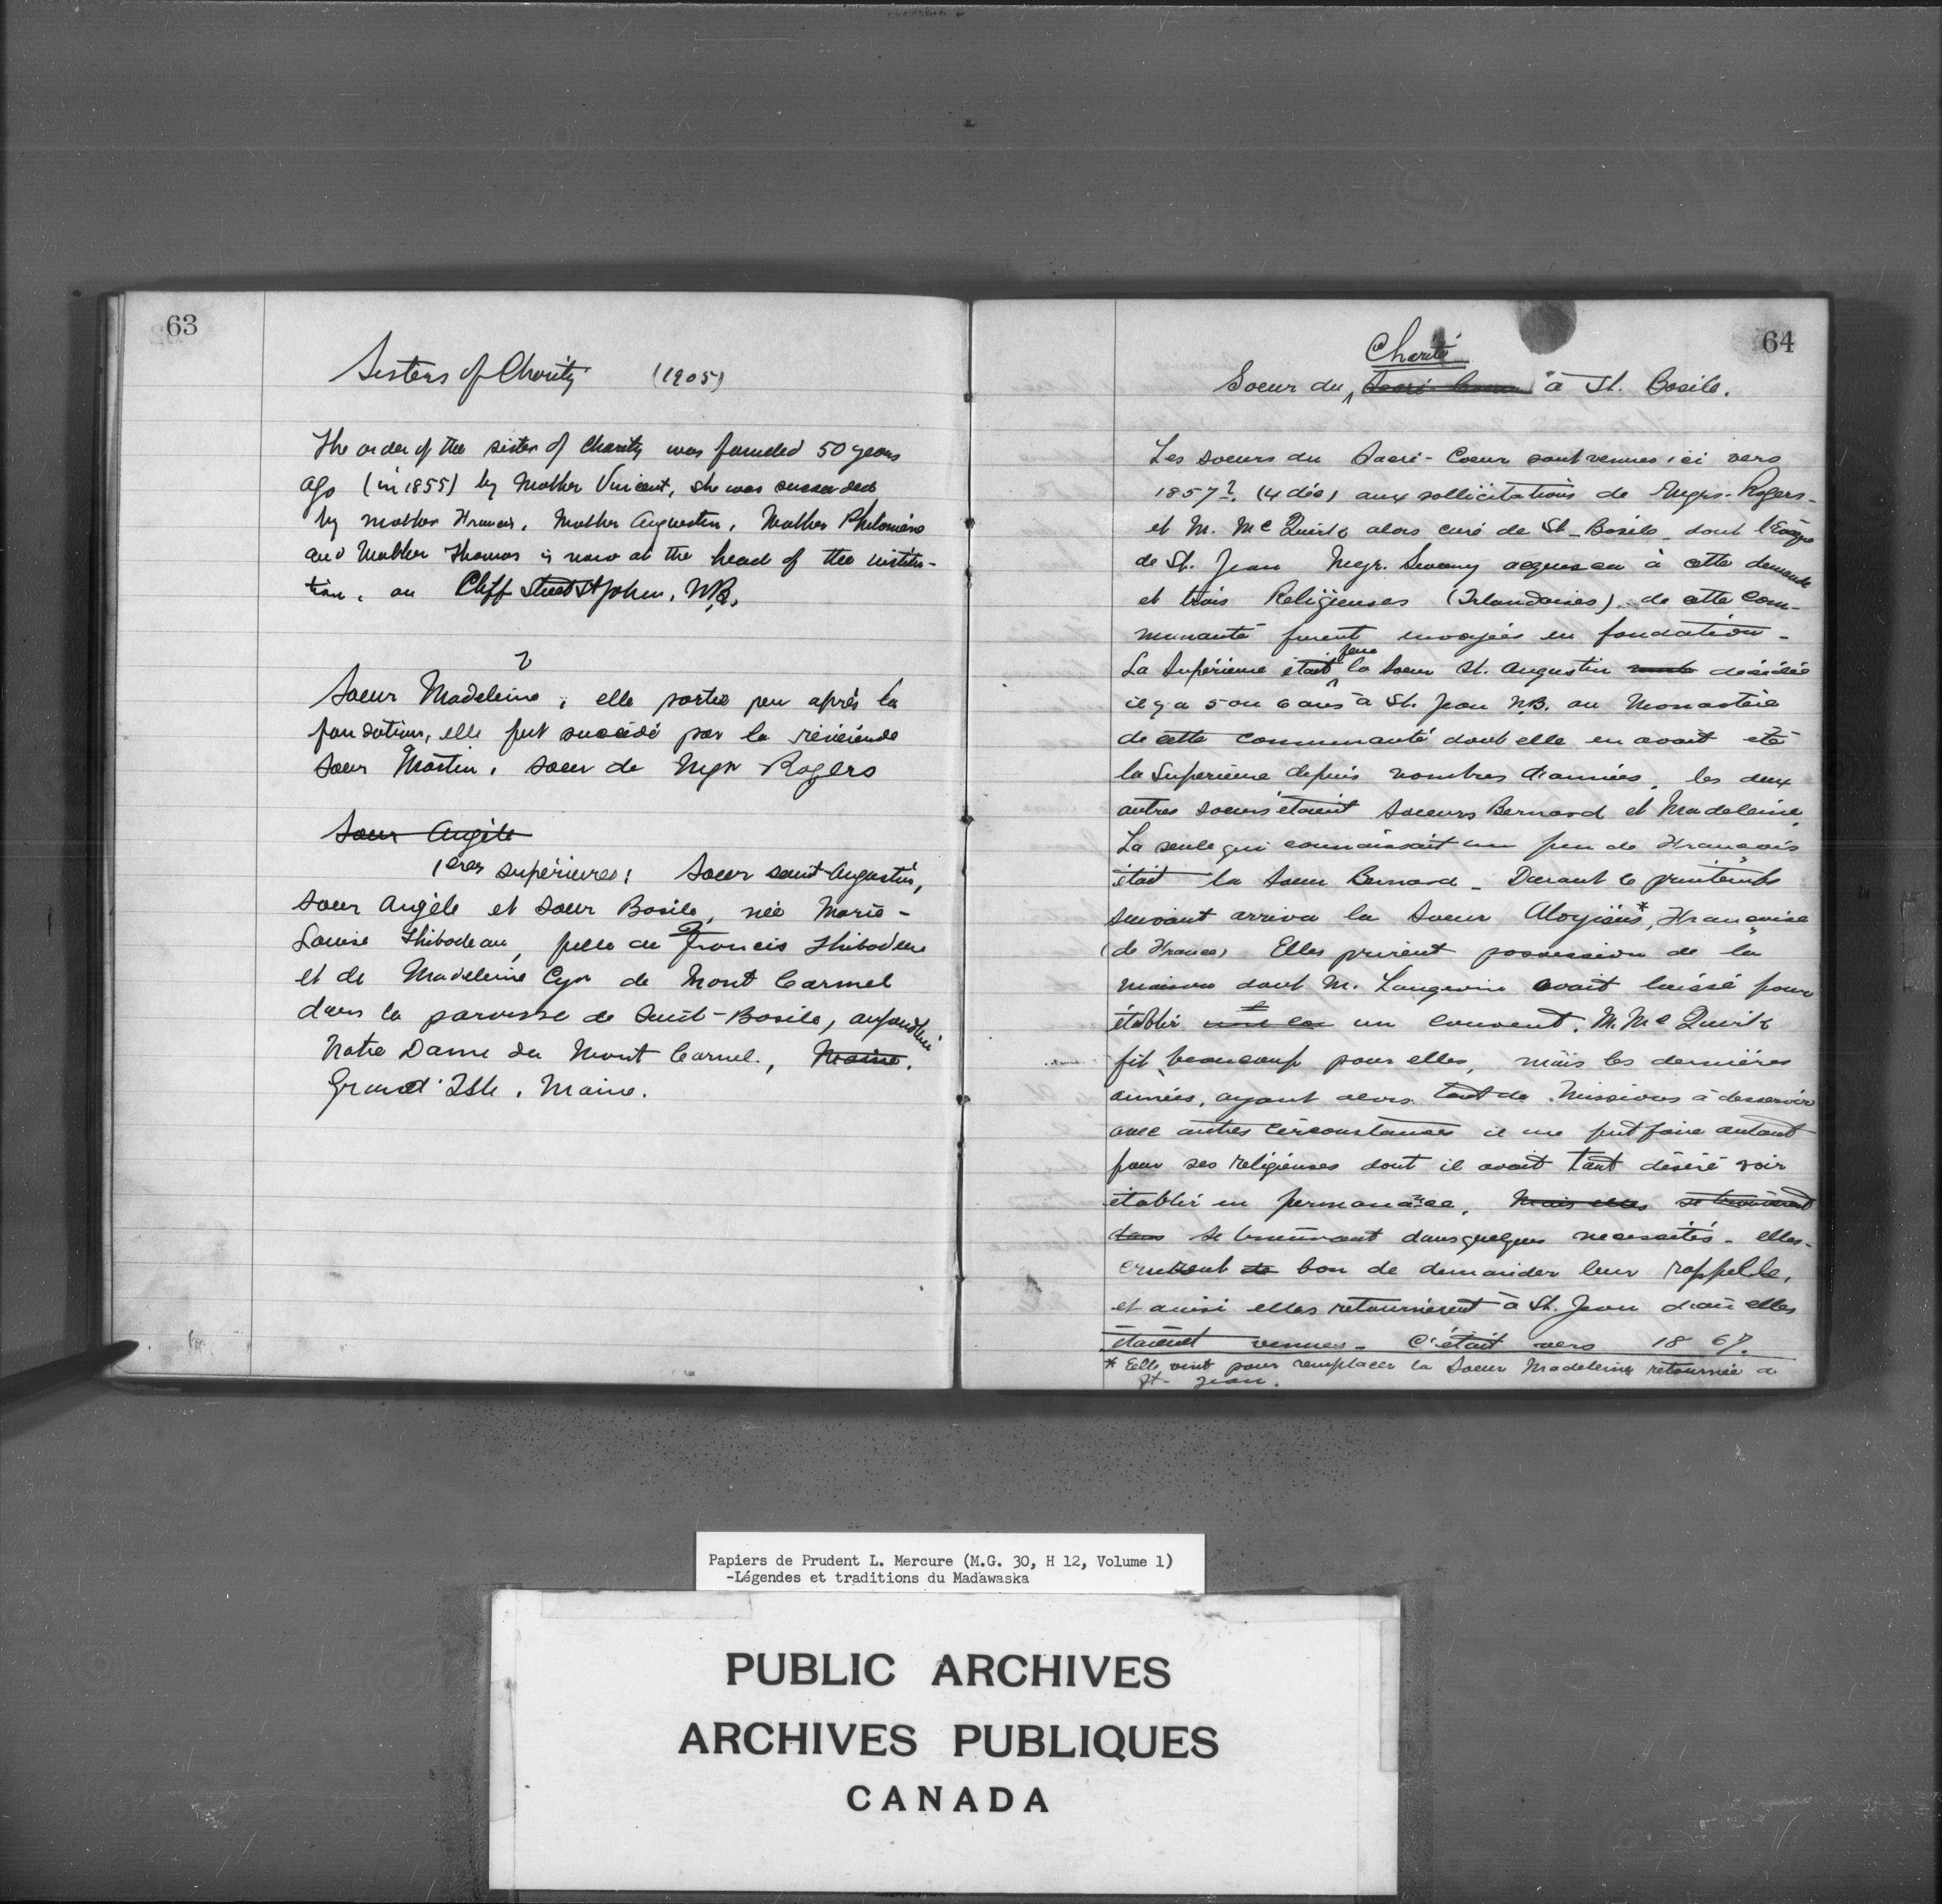 63
Sisters of Charity (1905)
The order of the sister of Charity was founded 50 years
ago (in 1855) by Mother Vincent, she was succeeded
by mother Francis, Mother Augustin, Mother Philomène
and Mother Thomas is now at the head of the institu-
tion, on Cliff Street St John, N.B.
?
Soeur Madeleine, elle sortie peu après la
fondation, elle fut succédé par la révérende
soeur Martin, soeur de Mgr Rogers
Soeur Angèle
1ères supérieures: Soeur saint Augustin,
soeur Angèle et soeur Basile, née Marie-
Louise Thibodeau, fille de Francis Thibodeau
et de Madeleine Cyr de Mont Carmel
dans la paroisse de Saint-Basile, aujourd'hui
Notre Dame du Mont Carmel, Maine.
Grand Isle, Maine.
64
Charité
Soeur du Sacré-Coeur à St. Basile.
Les soeurs du Sacré-Coeur sont venues ici vers
1857? (4 déc) aux sollicitations de Rogers-
et M. McQuirk alors curé de St-Basile dont l'Evêque
de St. Jean Mgr. Sweeny à cette demande
et trois Religieuses (Irlandaises) de cette com-
munauté furent envoyées en fondation-
La Supérieure était feue la Soeur St. Augustin décédée
il y a 5 ou 6 ans à St. Jean N.B. au Monastère
de cette communauté dont elle en avait été
la Supérieure depuis nombres d'années, les deux
autres soeurs étaient soeurs Bernard et Madeleine.
La seule qui connaissait un peu de Français
était la Soeur Bernard - Durant le printemps
suivant arriva la Soeur Aloysius*, Française
(de France) Elles prirent possession de la
maison dont M. Langevin avait laissé pour
établir un couvent. M. McQuirk
fit beaucoup pour elles, mais les dernières
années, ayant alors tant de Missions à desservir
avec autres circonstances il ne put faire autant
pour ses religieuses dont il avait tant désiré voir
établir en permanance. Mais elles se trouvèrent
dans se trouvant dans quelques necessités- elles-
crurent de bon de demander leur rappelle,
et ainsi elles retournèrent à St. Jean d'où elles
étaient venues- C'était vers 1867.
* Elle vint pour remplacer la Soeur Madeleine retournée à
St- Jean.
Papiers de Prudent L. Mercure (M.G. 30, H 12, Volume 1)
-Légendes et traditions du Madawaska
PUBLIC ARCHIVES
ARCHIVES PUBLIQUES
CANADA